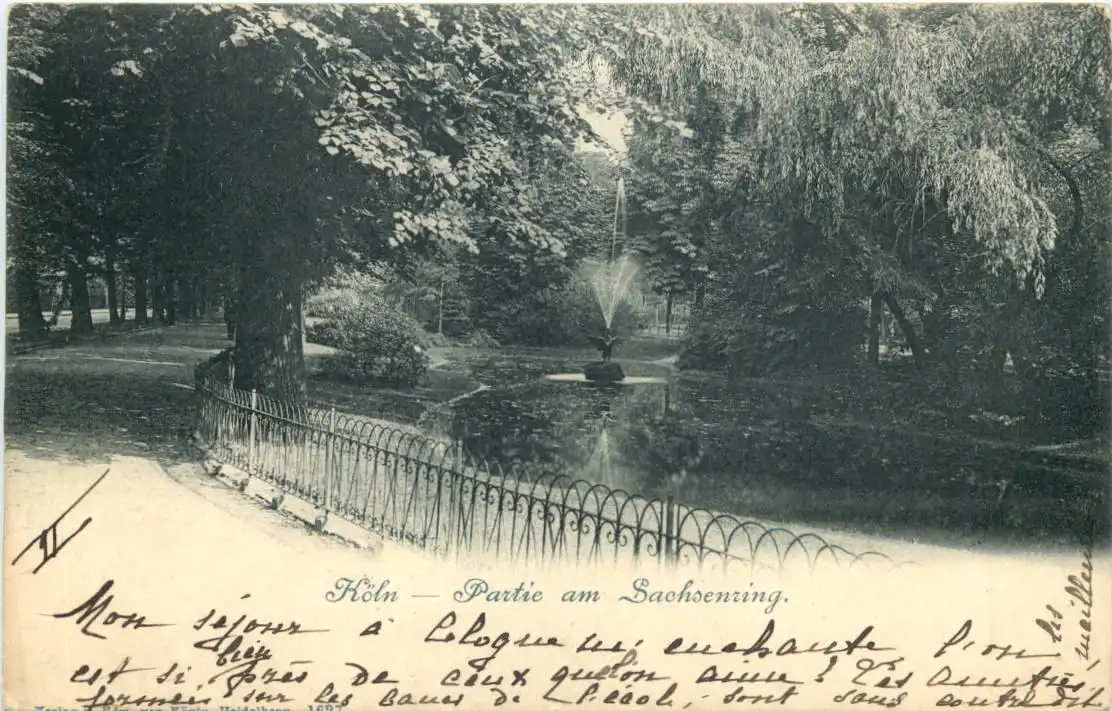 II
Köln — Partie am Sachsenring.
Mon séjour à Cologne m'enchante l'on
est si bien près de ceux qu'on aime! Les Amitiés
formées sur les bancs de l'école, sont sans contredit
les meilleures
Verlag v. Edm. von König, Heidelberg. 1687